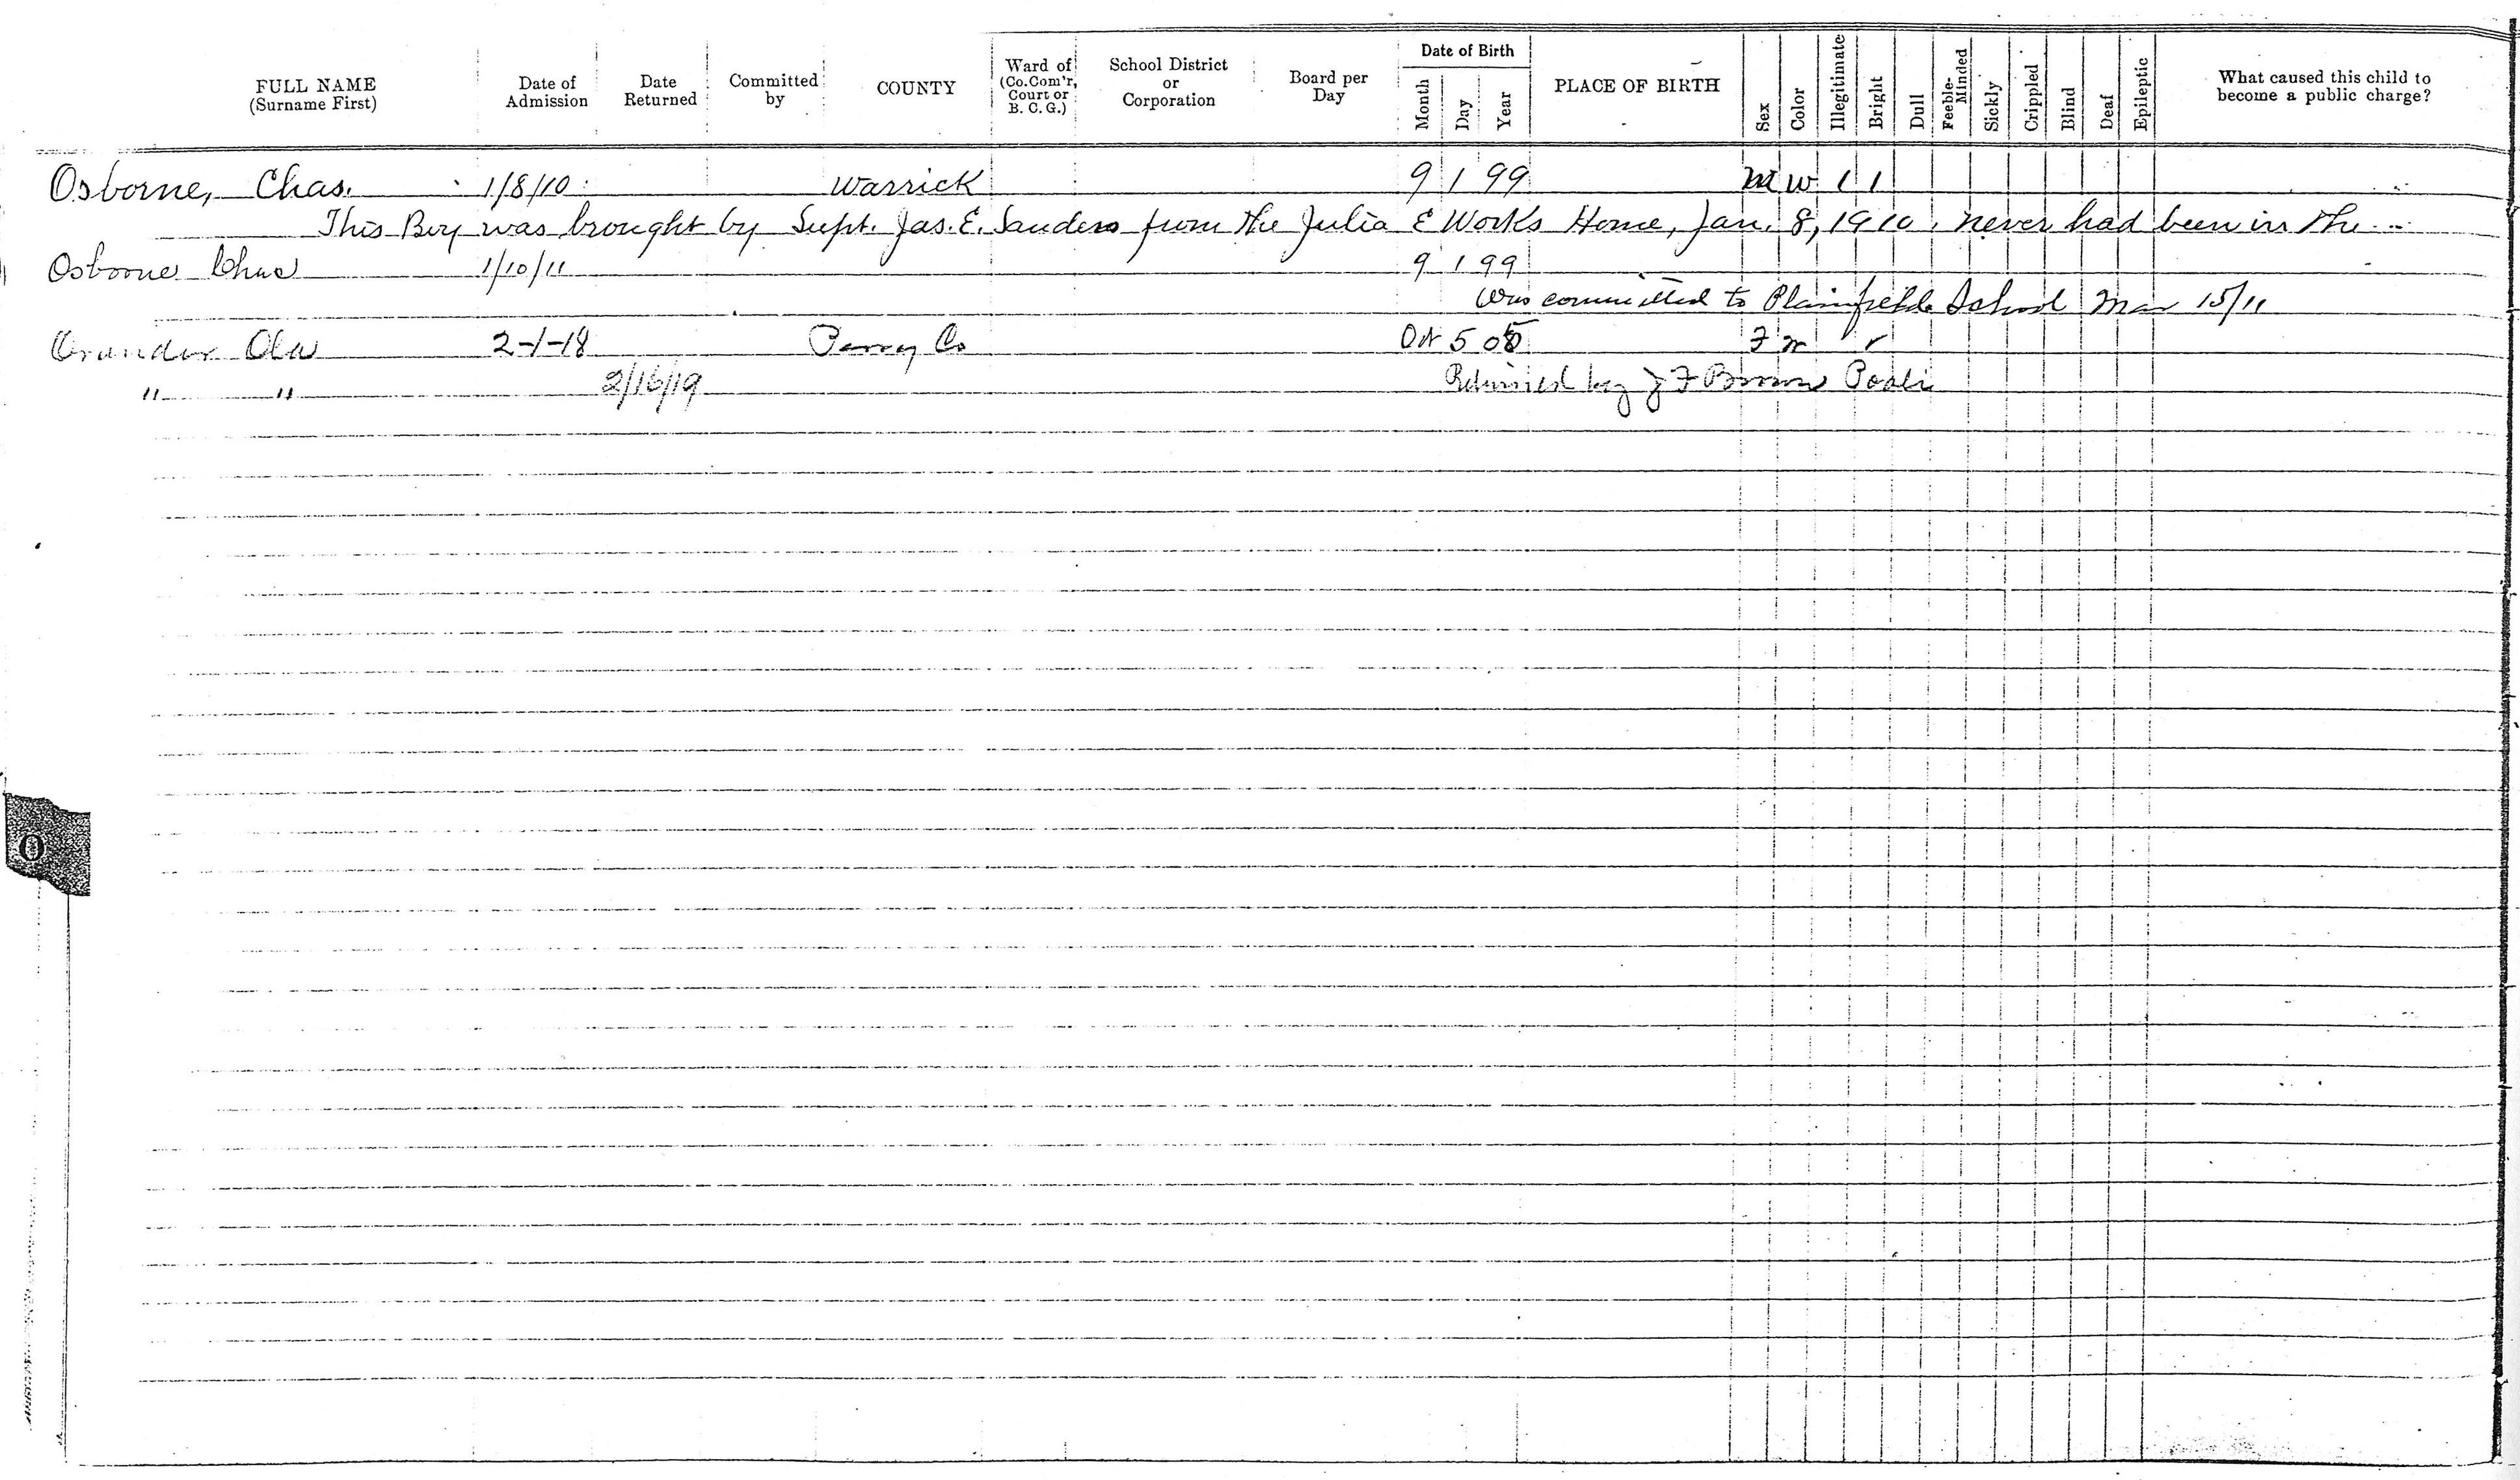 FULL NAME (Surname First) Date of Admission Date Returned Committed by COUNTY Ward of (Co. Com'r, Court or B. C. G.) School District or Corporation Board per Day Date of Birth Month Day Year PLACE OF BIRTH Sex Color Illegitimate Bright Dull Feeble-Minded Sickly Crippled Blind Deaf Epileptic What caused this child to become a public charge?
Osborne, Chas. 1/8/10 Warrick 9 1 99 M W 1 1
This Boy was brought by Supt. Jas. E. Sanders from the Julia E Works Home, Jan. 8, 1910, never had been in the
Osborne Chas 1/10/11 9 1 99
Was committed to Plainfield School Mar 15/11
Ola 2-1-18 Perry Co Oct 5 05 F
" " 2/16/19 Returned by J F Brown
O